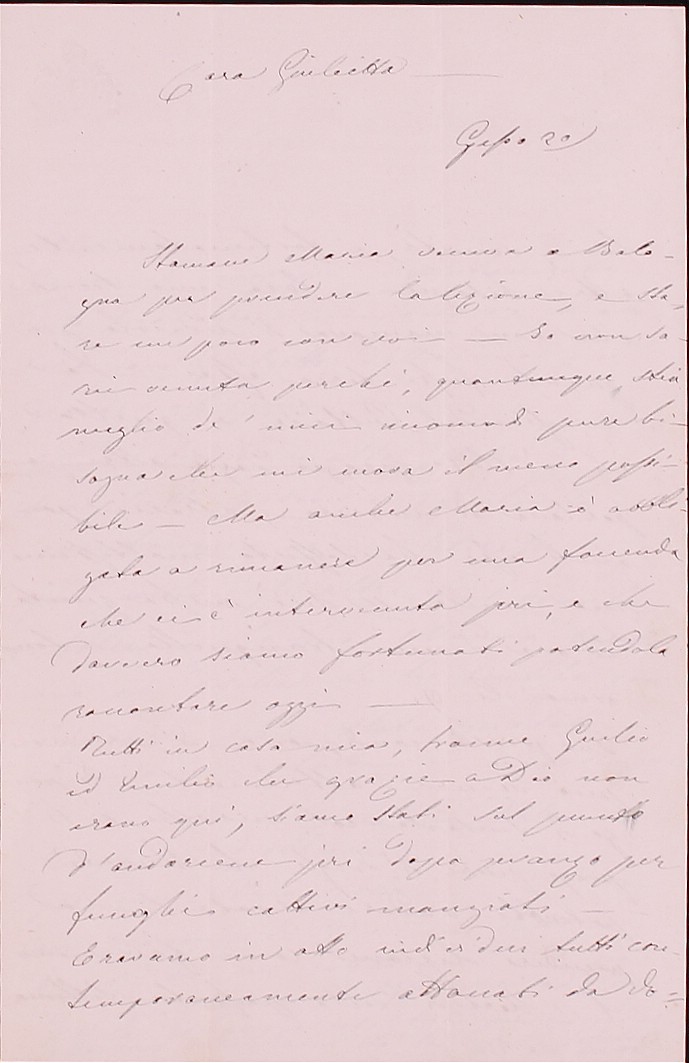 Cara Giulietta —
Gesso 20
Stamane Maria veniva a Bolo-
gna per prendere la lezione, e sta-
re un poco con voi — Io non sa-
rei venuta perché, quantunque stia
meglio de' miei incomodi pure bi-
sogna che mi mova il meno possi-
bile — Ma anche Maria è obbli-
gata a rimanere per una faccenda
che ci è intervenuta jeri, e che
davvero siamo fortunati potendola
raccontare oggi —
Tutti in casa mia, tranne Giulio
ed Emilio che grazie a Dio non
erano qui, siamo stati sul punto
d'andarcene jeri dopo pranzo per
funghi cattivi mangiati —
Eravamo in otto individui tutti con-
temporaneamente attaccati da do=